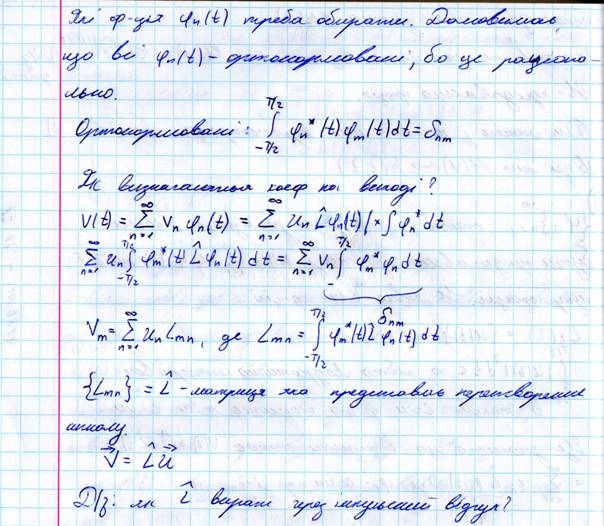 Які ф-ція φₙ(t) треба обирати. Домовимось,
що всі φₙ(t) – ортонормовані, бо це раціона-
льно.
Ортонормовані: ∫_{-T/2}^{T/2} φₙ*(t) φₘ(t) dt = δₙₘ
Як визначаються коеф на виході?
V(t) = ∑_{n=1}^{∞} Vₙ φₙ(t) = ∑_{n=1}^{∞} Uₙ L̂ φₙ(t) | × ∫ φₙ* dt
∑_{n=1}^{∞} Uₙ ∫_{-T/2}^{T/2} φₘ*(t) L̂ φₙ(t) dt = ∑_{n=1}^{∞} Vₙ ∫_{-}^{T/2} φₘ* φₙ dt
δₙₘ
Vₘ = ∑_{n=1}^{∞} Uₙ Lₘₙ, де Lₘₙ = ∫_{-T/2}^{T/2} φₘ*(t) L̂ φₙ(t) dt
{Lₘₙ} = L̂ – матриця яка представля перетворення
V⃗ = L̂ U⃗
Д/з: як L̂ вираж через імпульсний відгук?